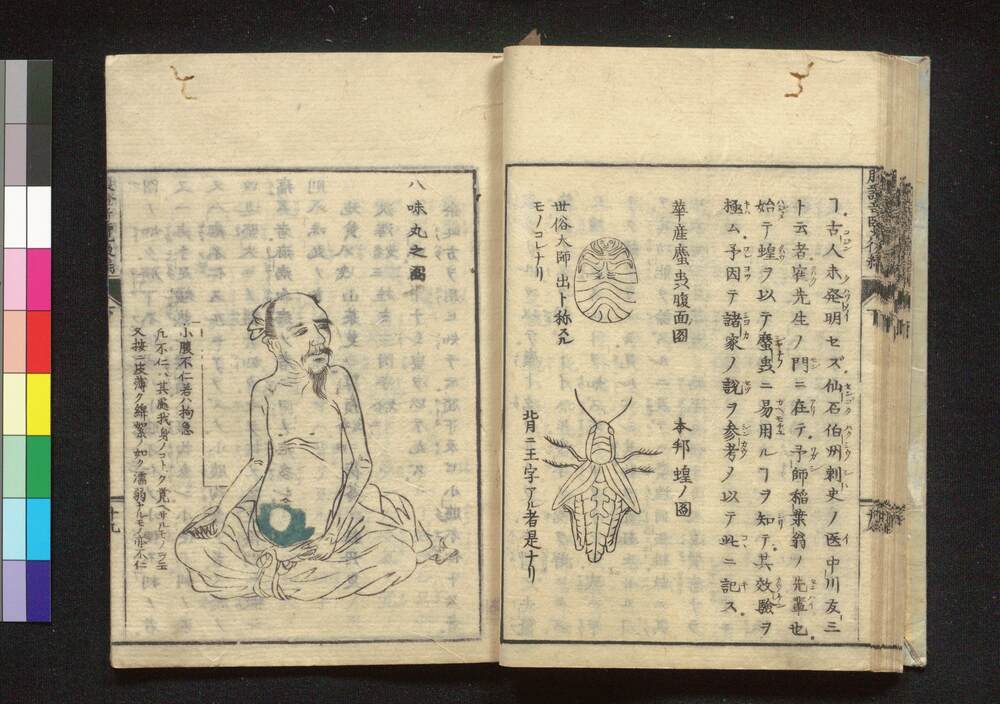 ヿ古人未発明セズ仙石伯州刺史ノ医中川友三
ト云者寉先生ノ門ニ在テ予師稲葉翁ノ先輩也
始テ蝗ヲ以テ䗪虫ニ易用ルヿヲ知テ其效驗ヲ
極ム予因テ諸家ノ說ヲ参考ノ以テ此ニ記ス
華産䗪虫腹面図
世俗大師ニ出ト称スル
モノコレナリ
本邦蝗ノ図
背ニ王字アル者是ナリ
八味丸之圖
小腹不仁若ハ拘急
凢不仁ハ其處我身ノコトク覚ヘサルモノヲ云
又按ニ皮薄ク綿絮ノ如ク濡弱ナルモノ亦不仁